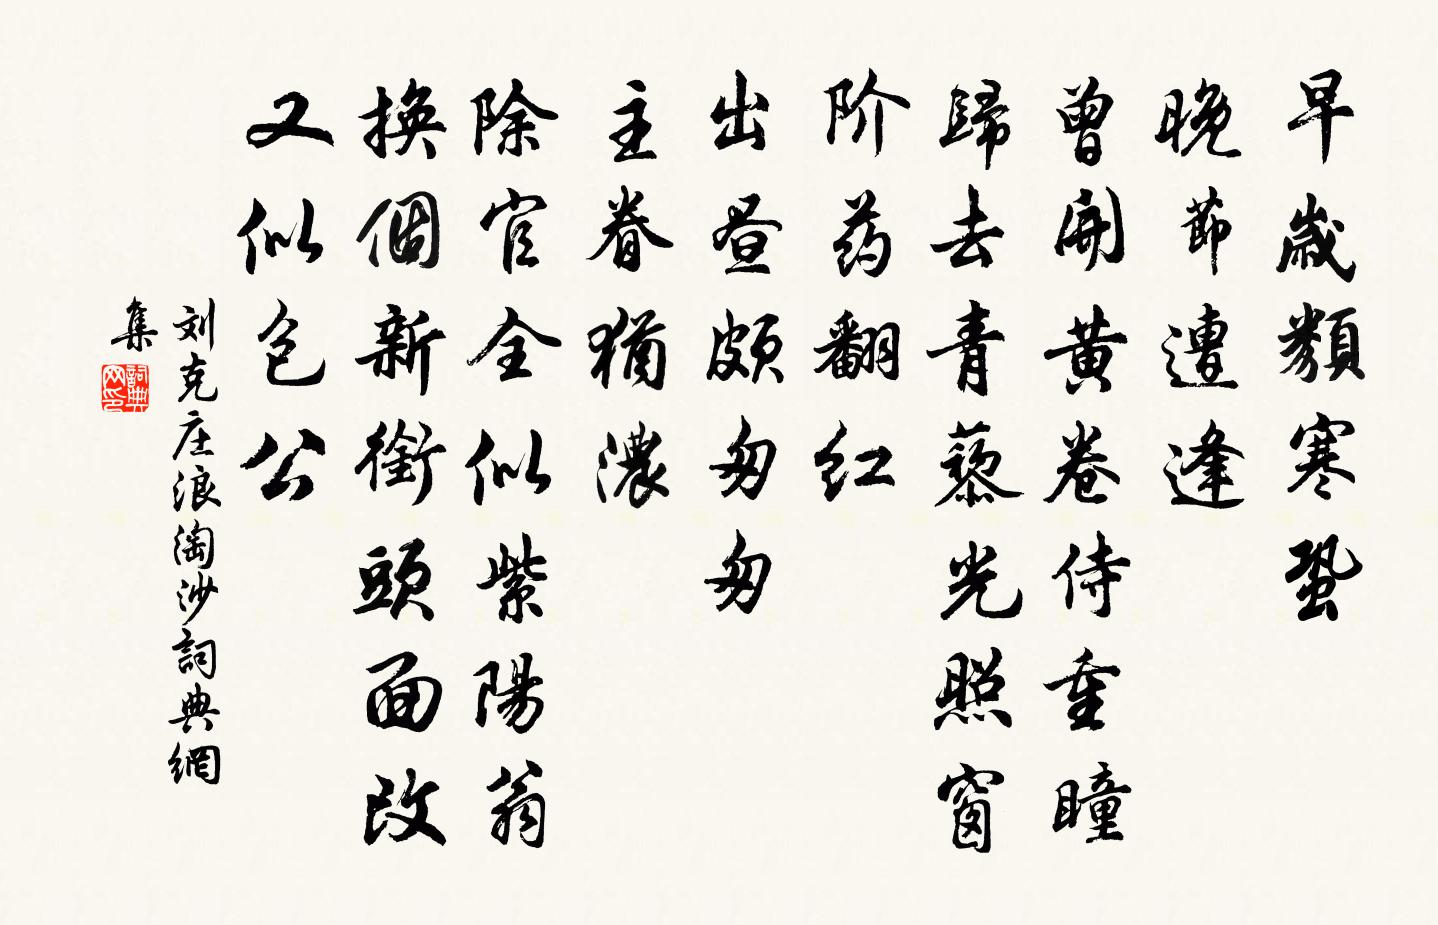 早歲類寒蛩
晚節遭逢
曾開黃卷侍重瞳
歸去青藜光照窗
阶药翻红
出昼頗匆匆
主眷猶濃
除官全似紫陽翁
換個新銜頭面改
又似包公
刘克庄浪淘沙詞典網
集
詞典
网印